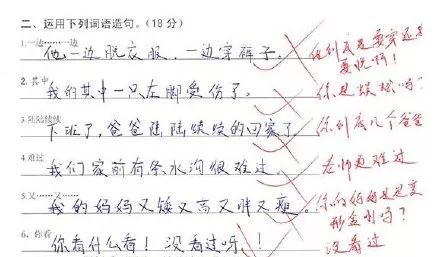 二、运用下列词语造句。(18分)
1.一边……一边
他一边脱衣服，一边穿裤子。
他到底是要穿还是要脱啊！
2.其中
我的其中一只左脚受伤了。
你是蜈蚣吗？
3.陆陆续续
下班了，爸爸陆陆续续的回家了
你到底几个爸爸
4.难过
我们家前有条水沟很难过。
老师更难过
5.又……又……
我的妈妈又矮又高又胖又瘦。
你的妈妈是变形金刚吗？
6.你看
你看什么看！没看过呀！
没看过